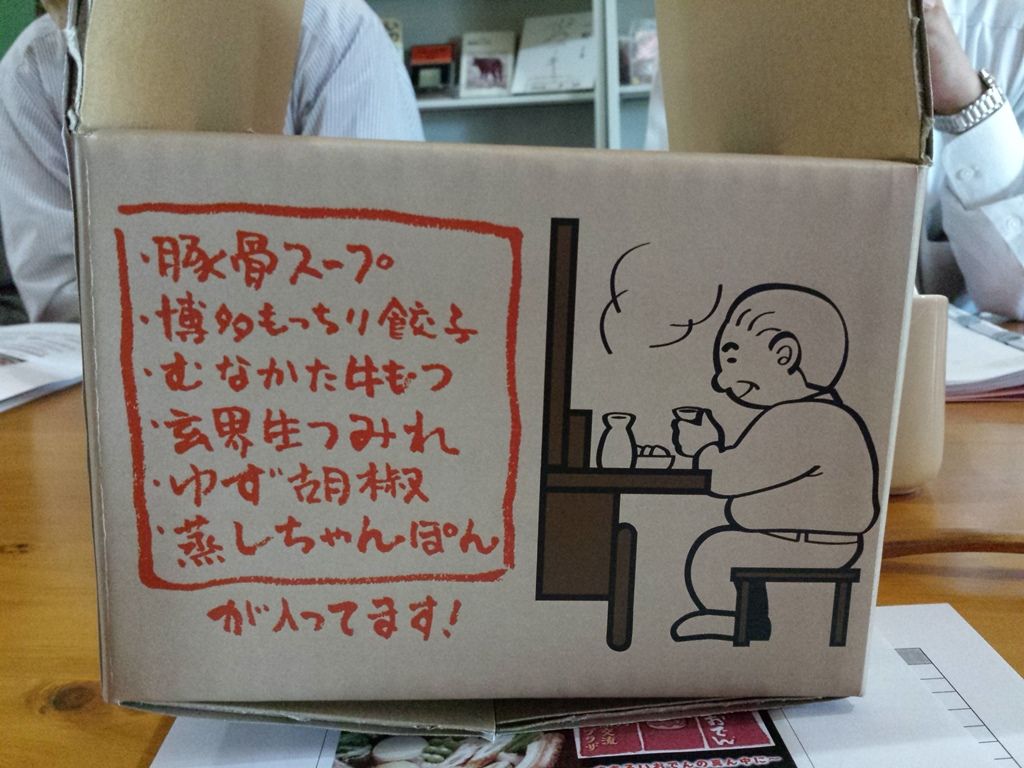 ・豚骨スープ
・博多もっちり餃子
・むなかた牛もつ
・玄界生つみれ
・ゆず胡椒
・蒸しちゃんぽん
が入ってます!
おでん
交流
プラザ